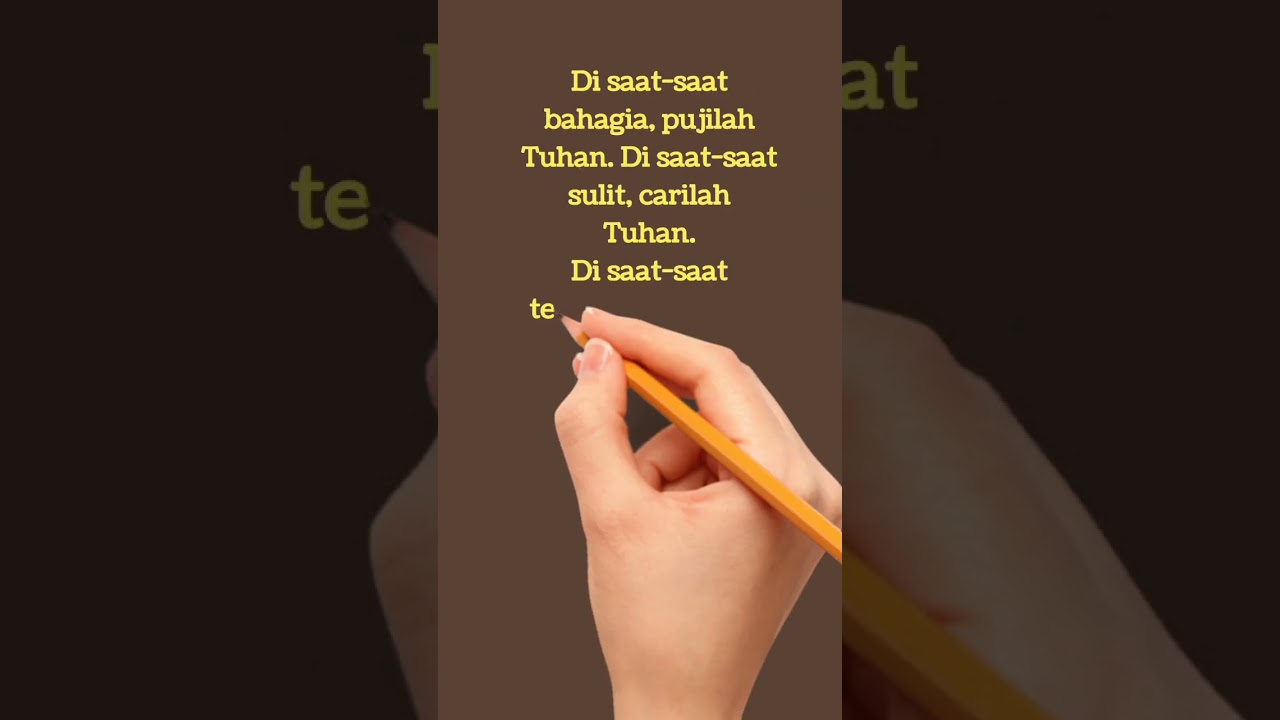 Di saat-saat
bahagia, pujilah
Tuhan. Di saat-saat
sulit, carilah
Tuhan.
Di saat-saat
te